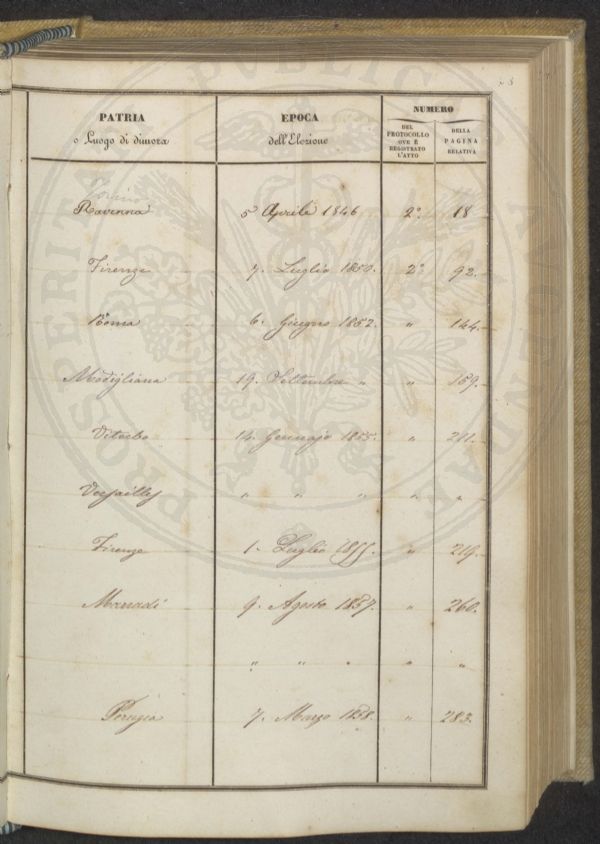 73
PATRIA
o Luogo di dimora
EPOCA
dell'Elezione
NUMERO
DEL
PROTOCOLLO
OVE È
REGISTRATO
L'ATTO
DELLA
PAGINA
RELATIVA
Torino
Ravenna 5 Aprile 1846 2° 18
Firenze 7. Luglio 1850. 2° 92.
Roma 6. Giugno 1852. " 144.
Modigliana 19. Settembre " " 159.
Viterbo 14. Gennajo 1855. " 211.
Versailles " " " " "
Firenze 1. Luglio 1855. " 219.
Marradi 9. Agosto 1857. " 260.
" " " " "
Perugia 7. Marzo 1858. " 283.
PROSPERITATI PUBLICAE AUGENDAE